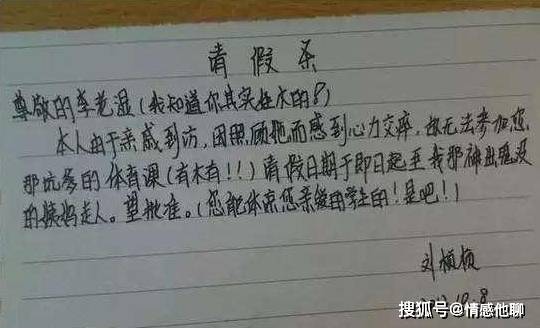 请假条
尊敬的李老湿(我知道你其实姓木的?)
本人由于亲戚到访,因照顾她而感到心力交瘁,故无法参加您
那坑爹的体育课(有木有!!)请假日期于即日起至我那神出鬼没
的姨妈走人。望批准。(您能体谅您亲爱的学生的!是吧!)
刘
10.8
搜狐号@情感他聊